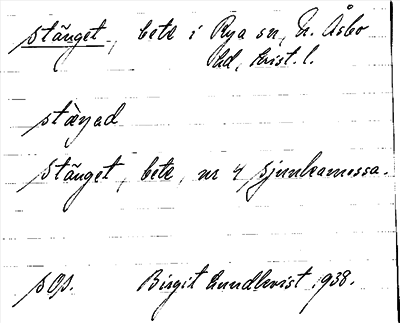 stänget, bete i Rya sn, N. Åsbo
hd, krist. l.
stäŋad
Stänget, bete, nr 4 Sjunkamossa.
sop. Birgit Lundkvist 1938.